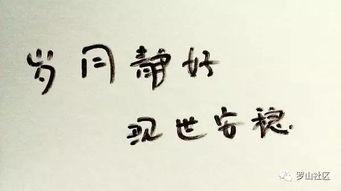 岁月静好
现世安稳.
罗山社区